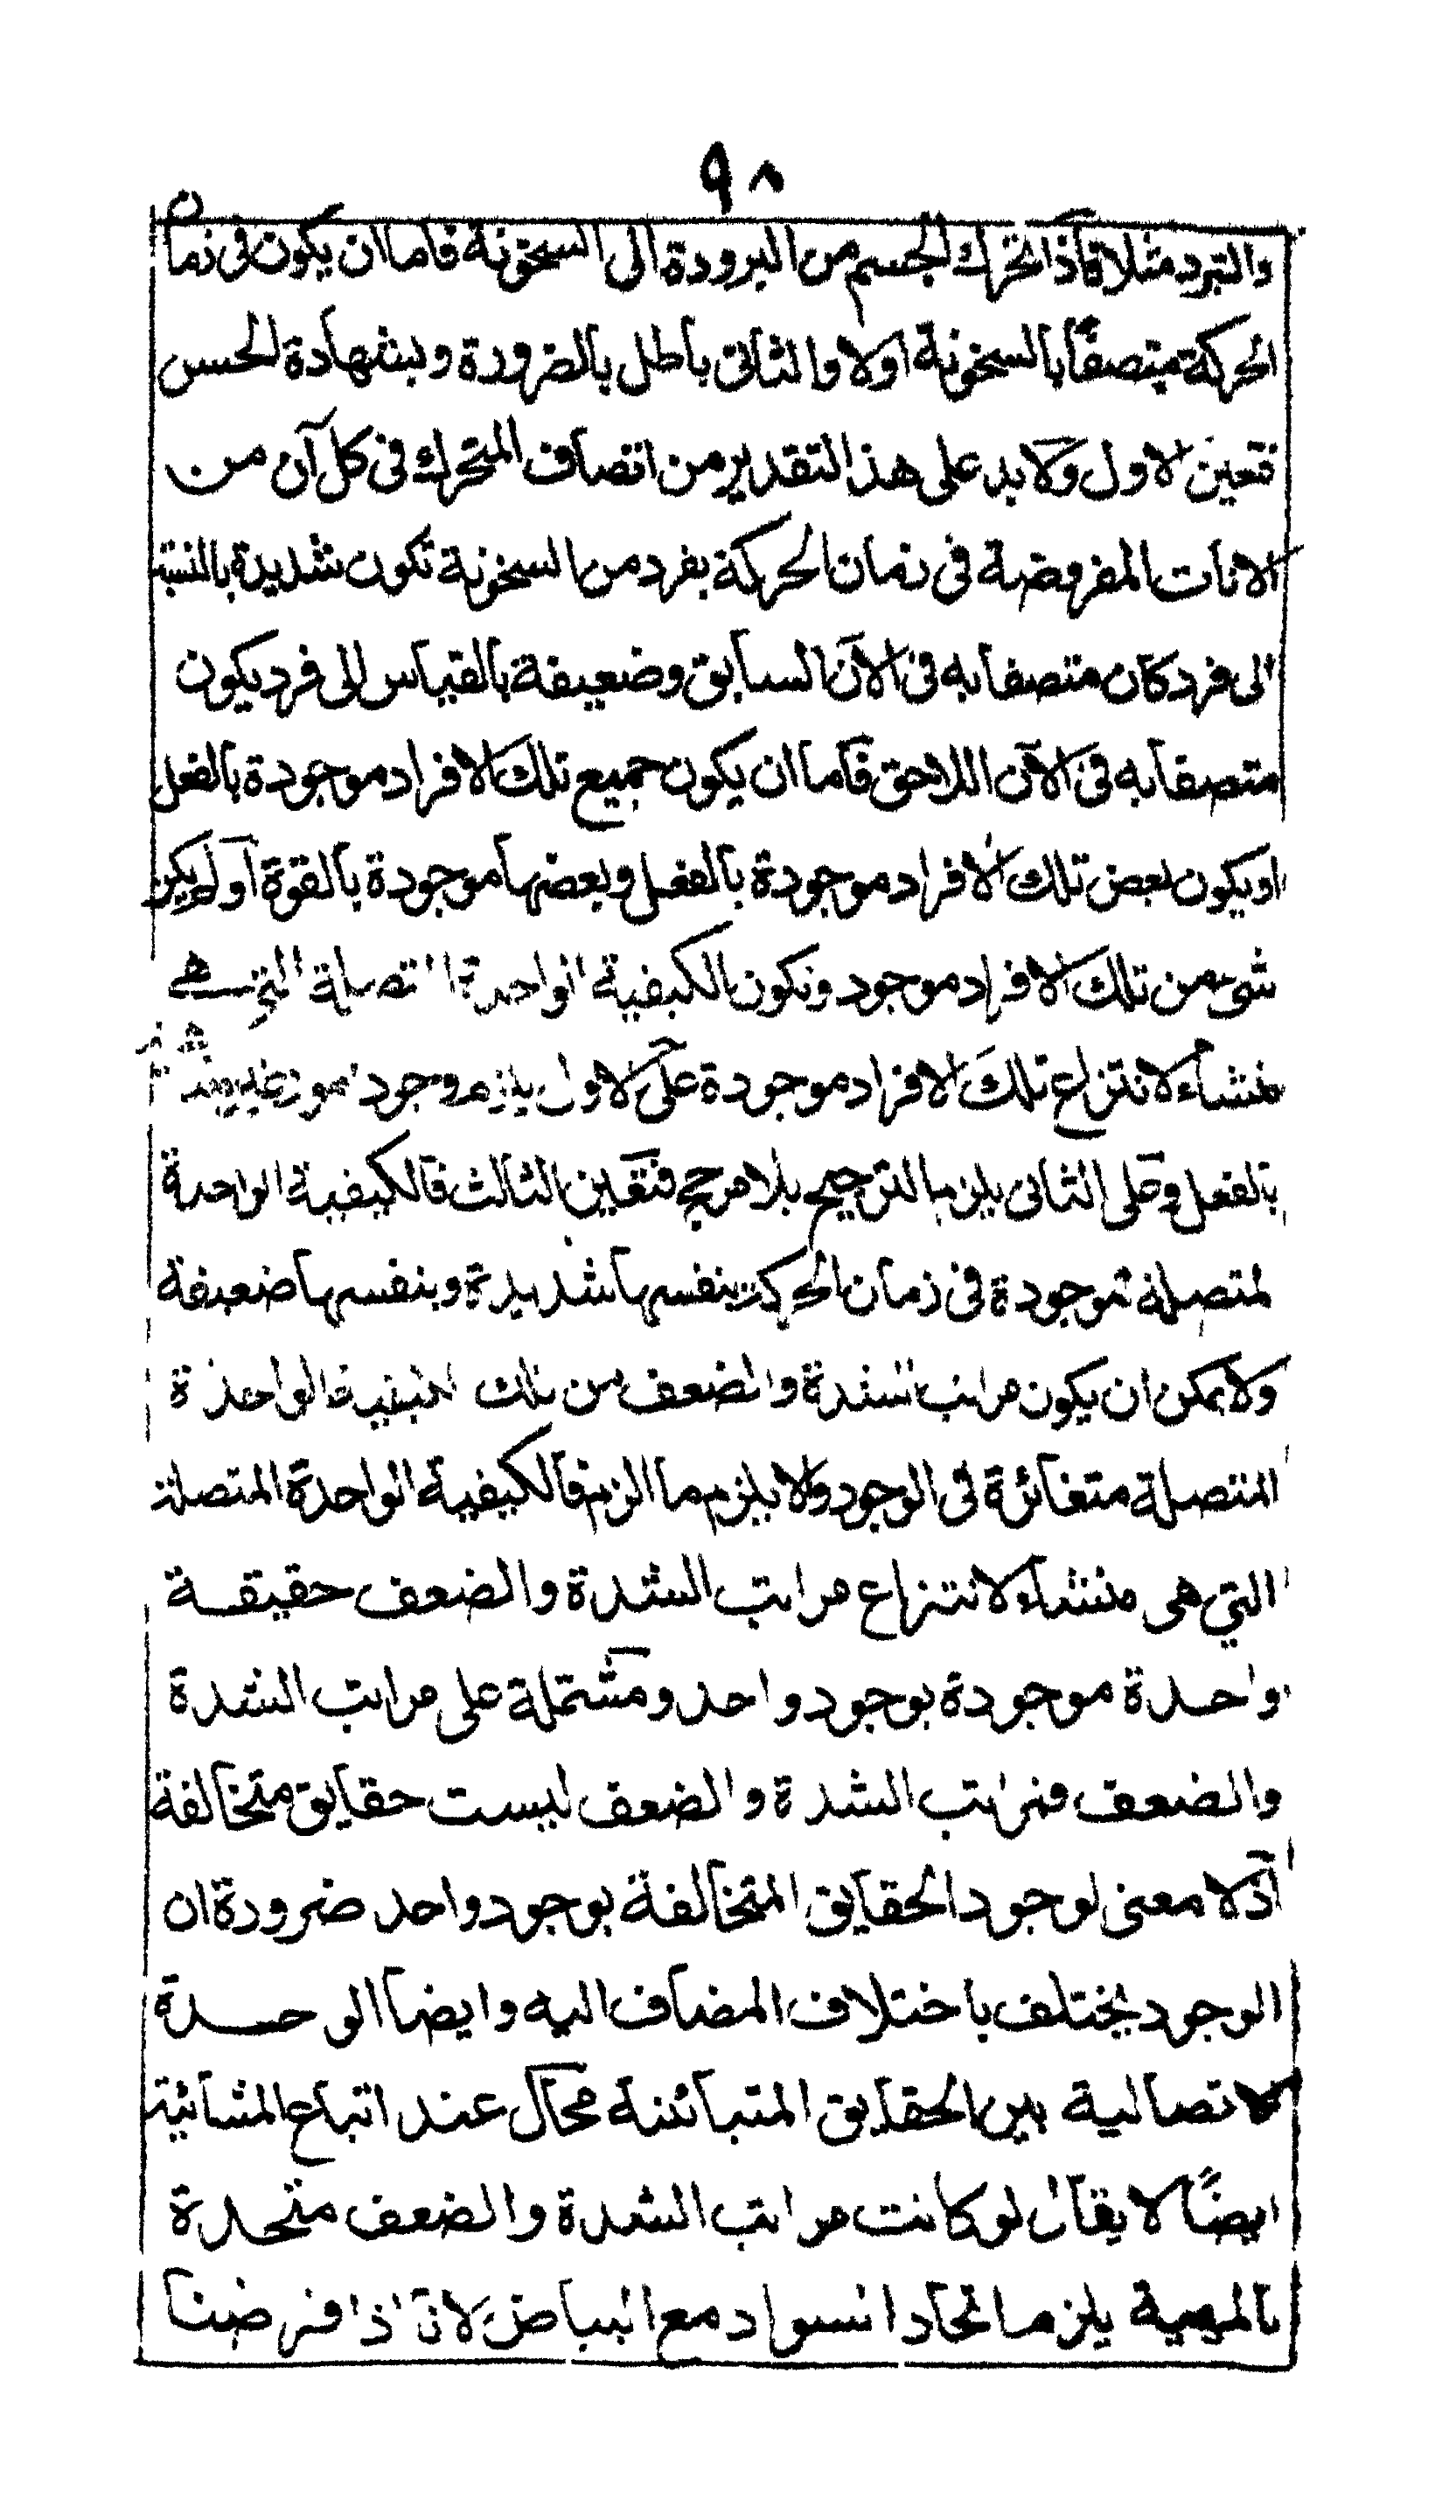 ٩٨
والتبرد مثلا فاذا تحرك الجسم من البرودة الى السخونة فاما ان يكون فى زمان
الحركة متصفًا بالسخونة اولا والثانى باطل بالضرورة وبشهادة الحس
فتعين الاول ولا بد على هذا التقدير من اتصاف المتحرك فى كل آن من
الانات المفروضة فى زمان الحركة بفرد من السخونة تكون شديدة بالنسبة
الى فرد كان متصفا به فى الآن السابق وضعيفة بالقياس الى فرد يكون
متصفا به فى الآن اللاحق فاما ان يكون جميع تلك الافراد موجودة بالفعل
او يكون بعض تلك الافراد موجودة بالفعل وبعضها موجودة بالقوة او لم يكن
شىء من تلك الافراد موجود وتكون الكيفية الواحدة المتصلة التى هى
منشاء لانتزاع تلك الافراد موجودة على الاول يلزم وجود امور غير متناهية
بالفعل وعلى الثانى يلزم الترجيح بلا مرجح فتعين الثالث فالكيفية الواحدة
المتصلة موجودة فى زمان الحركة بنفسها شديدة وبنفسها ضعيفة
ولا يمكن ان يكون مراتب الشدة والضعف من تلك الكيفية الواحدة
المتصلة متغائرة فى الوجود والا يلزم ما الزم فالكيفية الواحدة المتصلة
التى هى منشاء لانتزاع مراتب الشدة والضعف حقيقة
واحدة موجودة بوجود واحد ومشتملة على مراتب الشدة
والضعف فمراتب الشدة والضعف ليست حقايق متخالفة
اذ لا معنى لوجود الحقايق المتخالفة بوجود واحد ضرورة ان
الوجود يختلف باختلاف المضاف اليه وايضا الوحدة
الاتصالية بين الحقايق المتبائنة محال عند اتباع المشائية
ايضًا لا يقال لو كانت مراتب الشدة والضعف متحدة
بالمهية يلزم اتحاد السواد مع البياض لانا اذا فرضنا